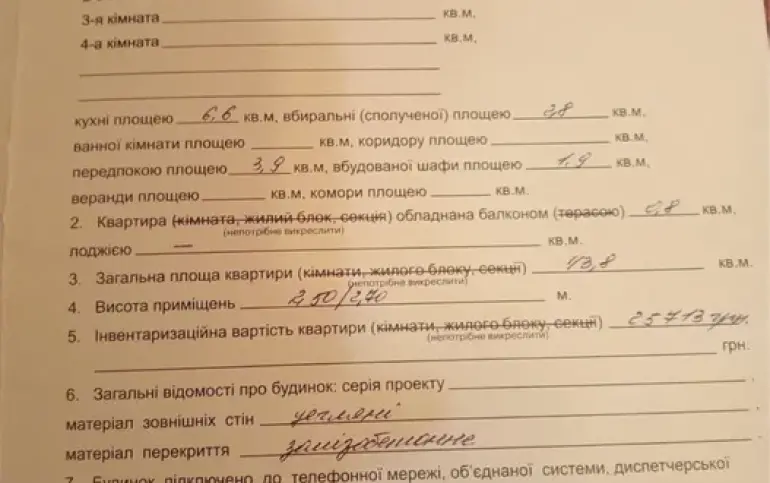 3-я кімната кв.м.
4-а кімната кв.м.
кухні площею 6,6 кв.м, вбиральні (сполученої) площею 2,8 кв.м.
ванної кімнати площею кв.м, коридору площею кв.м,
передпокою площею 3,9 кв.м, вбудованої шафи площею 1,9 кв.м,
веранди площею кв.м. комори площею кв.м.
2. Квартира (кімната, жилий блок, секція) обладнана балконом (терасою) 0,8 кв.м,
(непотрібне викреслити)
лоджією — кв.м.
3. Загальна площа квартири (кімнати, жилого блоку, секції) 43,8 кв.м.
(непотрібне викреслити)
4. Висота приміщень 2,50/2,70 м.
5. Інвентаризаційна вартість квартири (кімнати, жилого блоку, секції) 25713 грн.
(непотрібне викреслити)
грн.
6. Загальні відомості про будинок: серія проекту .
матеріал зовнішніх стін цегляні ,
матеріал перекриття залізобетонне .
7. Будинок підключено до телефонної мережі, об'єднаної системи, диспетчерської